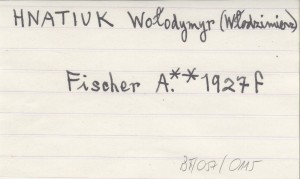 HNATIUK Wołodymyr (Włodzimierz)
Fischer A.** 1927f
BF/057/0115